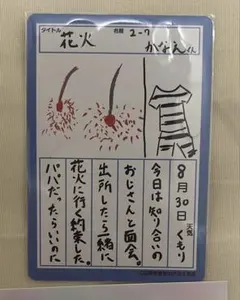 タイトル 花火
名前 2-7 がぁえくん
8月30日 天気 くもり
今日は知り合いの
おじさんと面会。
出所したら一緒に
花火に行く約束した。
パパだったらいいのに